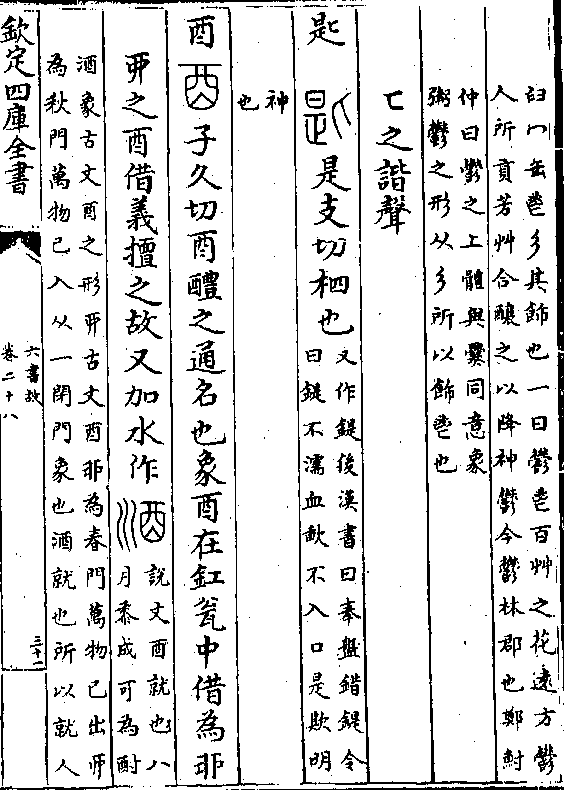 臼冂缶鬯彡其飾也一曰鬱鬯百艸之花遠方鬱
人所貢芳艸合釀之以降神鬱今鬱林郡也鄭尌
仲曰鬱之上體與爨同意象
粥鬱之形从彡所以飾鬯也
匕之諧聲
匙 是支切柶也
又作鍉後漢書曰奉盤錯鍉令
曰鍉不濡血歃不入口是欺明
神
也
酉 子久切酉醴之通名也象酉在缸瓮中借為戼
丣之酉借義擅之故又加水作
說文酉就也八
月黍成可為酎
酒象古文酉之形丣古文酉戼為春門萬物已出丣
為秋門萬物已入从一閉門象也酒就也所以就人
欽定四庫全書
六書故
卷二十八
三十一